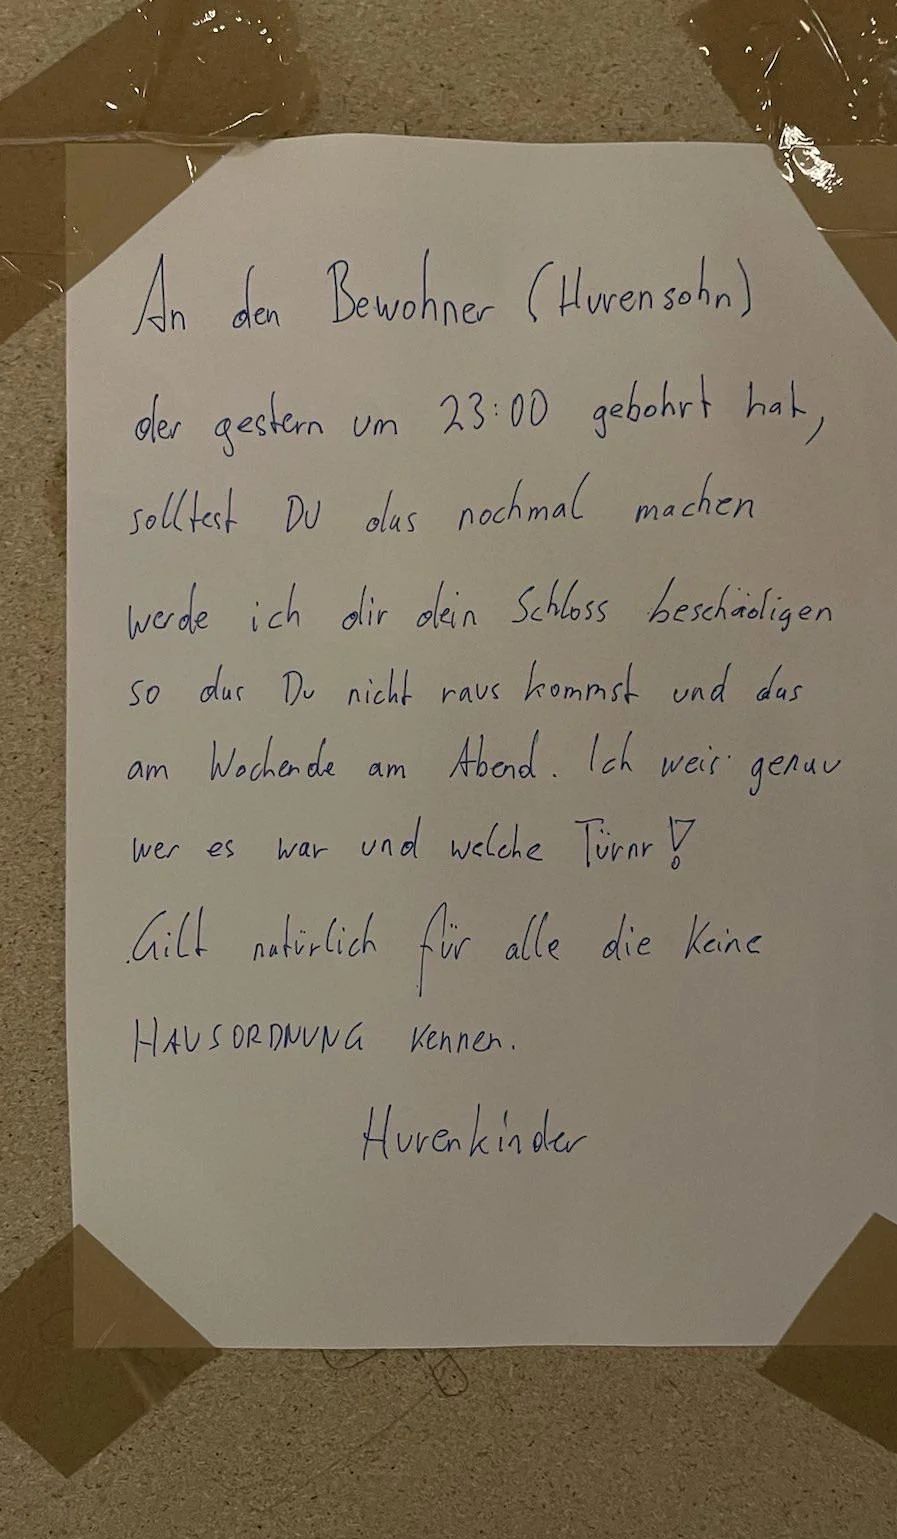 An den Bewohner (Hurensohn)
der gestern um 23:00 gebohrt hat,
solltest DU das nochmal machen
werde ich dir dein Schloss beschädigen
so das Du nicht raus kommst und das
am Wochende am Abend. Ich weis genau
wer es war und welche Türnr!
Gilt natürlich für alle die keine
HAUSORDNUNG kennen.
Hurenkinder